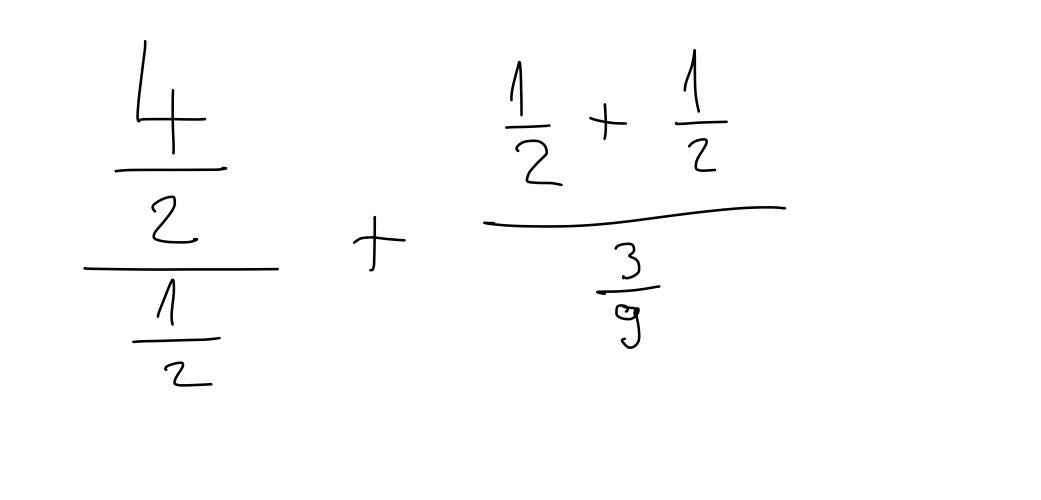 \frac{\frac{4}{2}}{\frac{1}{2}} + \frac{\frac{1}{2} + \frac{1}{2}}{\frac{3}{9}}